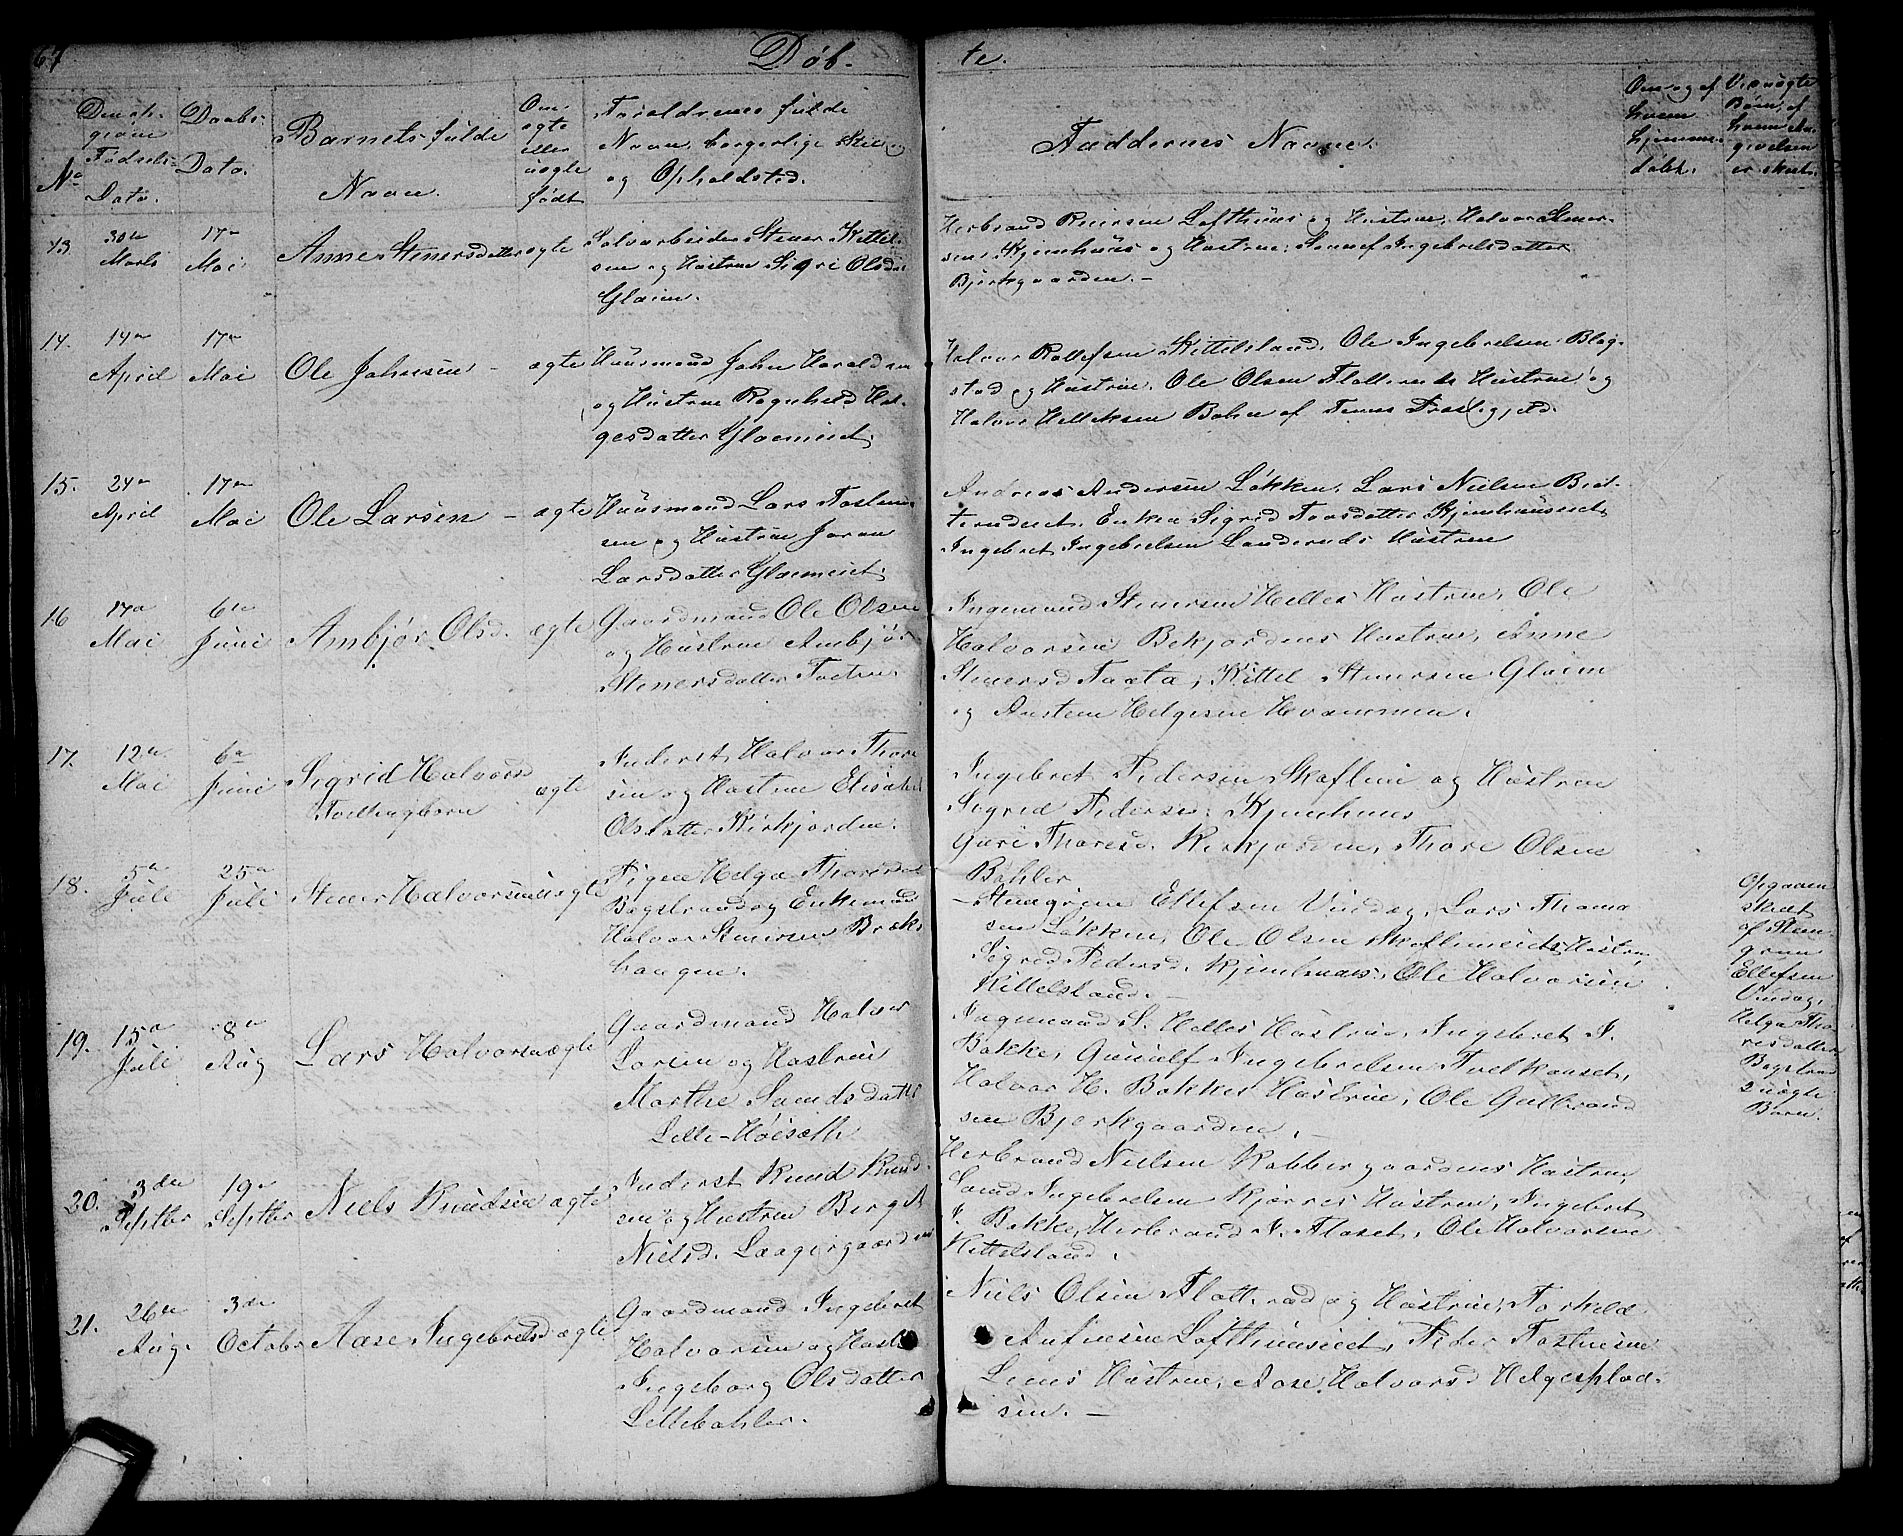 67
Døb- te.
No
Den opgivne Fødsels-Dato.
Daabs-Dato.
Barnets fulde Navn.
Om ægte eller uægte født
Forældrenes fulde Navn, borgerlige Stil og Opholdsted.
Faddernes Navne.
Om og af hvem hjemmedøbt.
Ved uægte Børn, af hvem Angivelsen er skeet.
13. 30te Marts 17de Mai. Anne Stenersdatter ægte
Sølvarbeider Stener Kittel-
sen og Hustrue Sigri Olsdr
Glaim.
Herbrand Lofthuus og Hustrue, Halvor Stener-
sen Kjemhuus og Hustrue, Ingebrelsdatter
Bjerkgaarden. –
14. 14de April 17de Mai Ole Johnsen – ægte
Huusmand John Harald
og Hustrue Ragnhild Hel-
gesdatter Gloemeiet.
Halvor Rollefsen Kittelsland. Ole Ingebrelsen Blag-
stad og Hustrue. Ole Olsen Hustrue og
Bahn af Præstegjeld.
15. 24de April 17de Mai Ole Larsen – ægte
Huusmand Lars Tosten-
sen og Hustrue Joran
Larsdatter Gloemeiet.
Andreas Andersen Løkken, Lars Nielsen
Enken Sigrid
Ingebret Ingebrelsen Landeruds Hustrue
16 17de Mai 6te Juni Ambjør Olsd. ægte
Gaardmand Ole Olsen
og Hustrue Ambjør
Stenersdatter
Ingemand Stenersen Helles Hustrue, Ole
Halvorsen Bekjordens Hustrue, Anne
Stenersd Taata, Kittel Stenersen Glaim
og Austen Helgesen Hvammen.
17. 12te Mai 6te Juni Sigrid Halvors
Tvillingbørn ægte
Inderst Halvor Thore
sen og Hustrue Elisabet
Olsdatter Kirkjorden.
Ingebret Pedersen Skaflem og Hustrue
Sigrid Pedersd. Kjemhuus
Guri Thoresd. Kirkjorden, Thore Olsen
Bahler
18. 5te Juli 25de Juli Stener Halvorsen uægte
Pigen Helga Thoresd
Bagstrand og Enkemand
Halvor Stenersen Bræk
haugen.
– Steingrim Ellefsen Vindag, Lars Thoma
sen Løkken, Ole Olsen Hustrue,
Sigrid Pedersd. Kjemhuus, Ole Halvorsen
Kittelsland. –
Opgaven
skeet
af Stein-
grim
Ellefsen
Vindag,
Helga Tho-
resdatter
Bagstran
2 uægte
Barn.
19. 15de Juli 8de Aug Lars Halvorsen ægte
Gaardmand Halvor
Larsen og Hustrue
Marthe Samdsdatter
Lille-Høisæth
Ingemand S. Helles Hustrue, Ingebret I.
Bakke, Ingebrelsen
Halvor H. Bakkes Hustrue, Ole Gulbrand
sen Bjerkgaarden. –
20. 3die Septbr 19de Septbr Niels Knudsen ægte
Inderst Knud Knud-
sen og Hustrue Berget
Nielsd. Laagergaarden
Herbrand Nielsen Kobbergaardens Hustrue,
Ingebrelsen Kjørres Hustrue, Ingebret
I. Bakke, Herbrand I. Flaset, Ole Halvorsen
Kittelsland.
21. 26de Aug. 3die Octobr Aase Ingebretsd ægte
Gaardmand Ingebret
Halvorsen og Hustr
Ingeborg Olsdatter
Lillebahler.
Niels Olsen og Hustrue, Torkeld
Anfinsen Lofthuuseiet, Peder Tostensen
Liens Hustrue, Aase Halvorsd Helgesplad-
sen. –